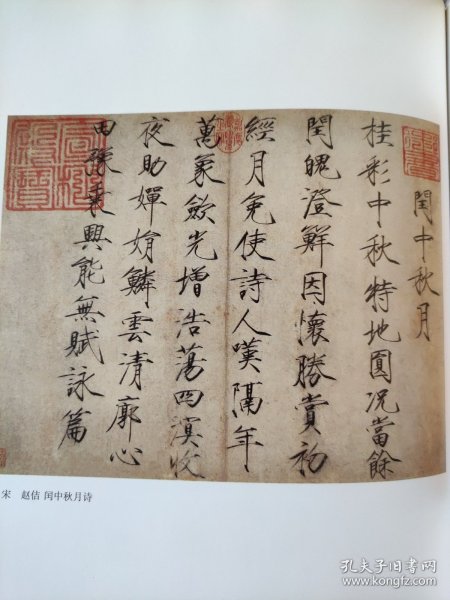 閏中秋月
桂彩中秋特地圓況當餘
閏魄澄鮮因懷勝賞初
經月免使詩人嘆隔年
萬象歛光增浩蕩四溟收
夜助嬋娟鱗雲清廓心
田豫乘興能無賦詠篇
宋 赵佶 闰中秋月诗
孔夫子旧书网
www.kongfz.com